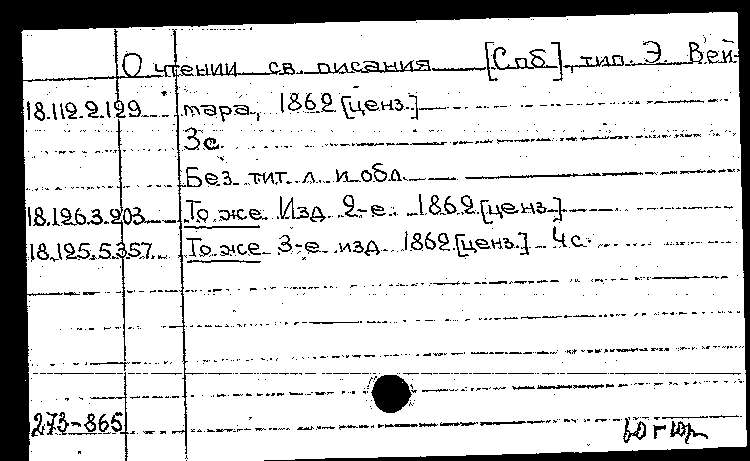 О чтении св. писания [Спб], тип. Э. Вей-
18.112.2.129 мара, 1862 [ценз.]
3с.
Без тит. л. и обл.
18.126.3.203 То же Изд 2-е. 1862 [ценз.]
18.125.5.357 То же 3-е изд 1862 [ценз.] 4с.
273-865